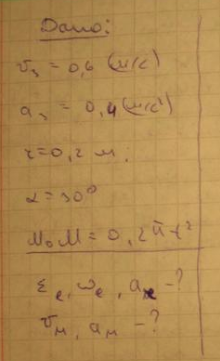 Дано:
v₃ = 0,6 (м/с)
a₃ = 0,4 (м/с²)
r = 0,2 м.
α = 30°
M₀M = 0,2π t²
ε_e, ω_e, a_к - ?
v_м, a_м - ?